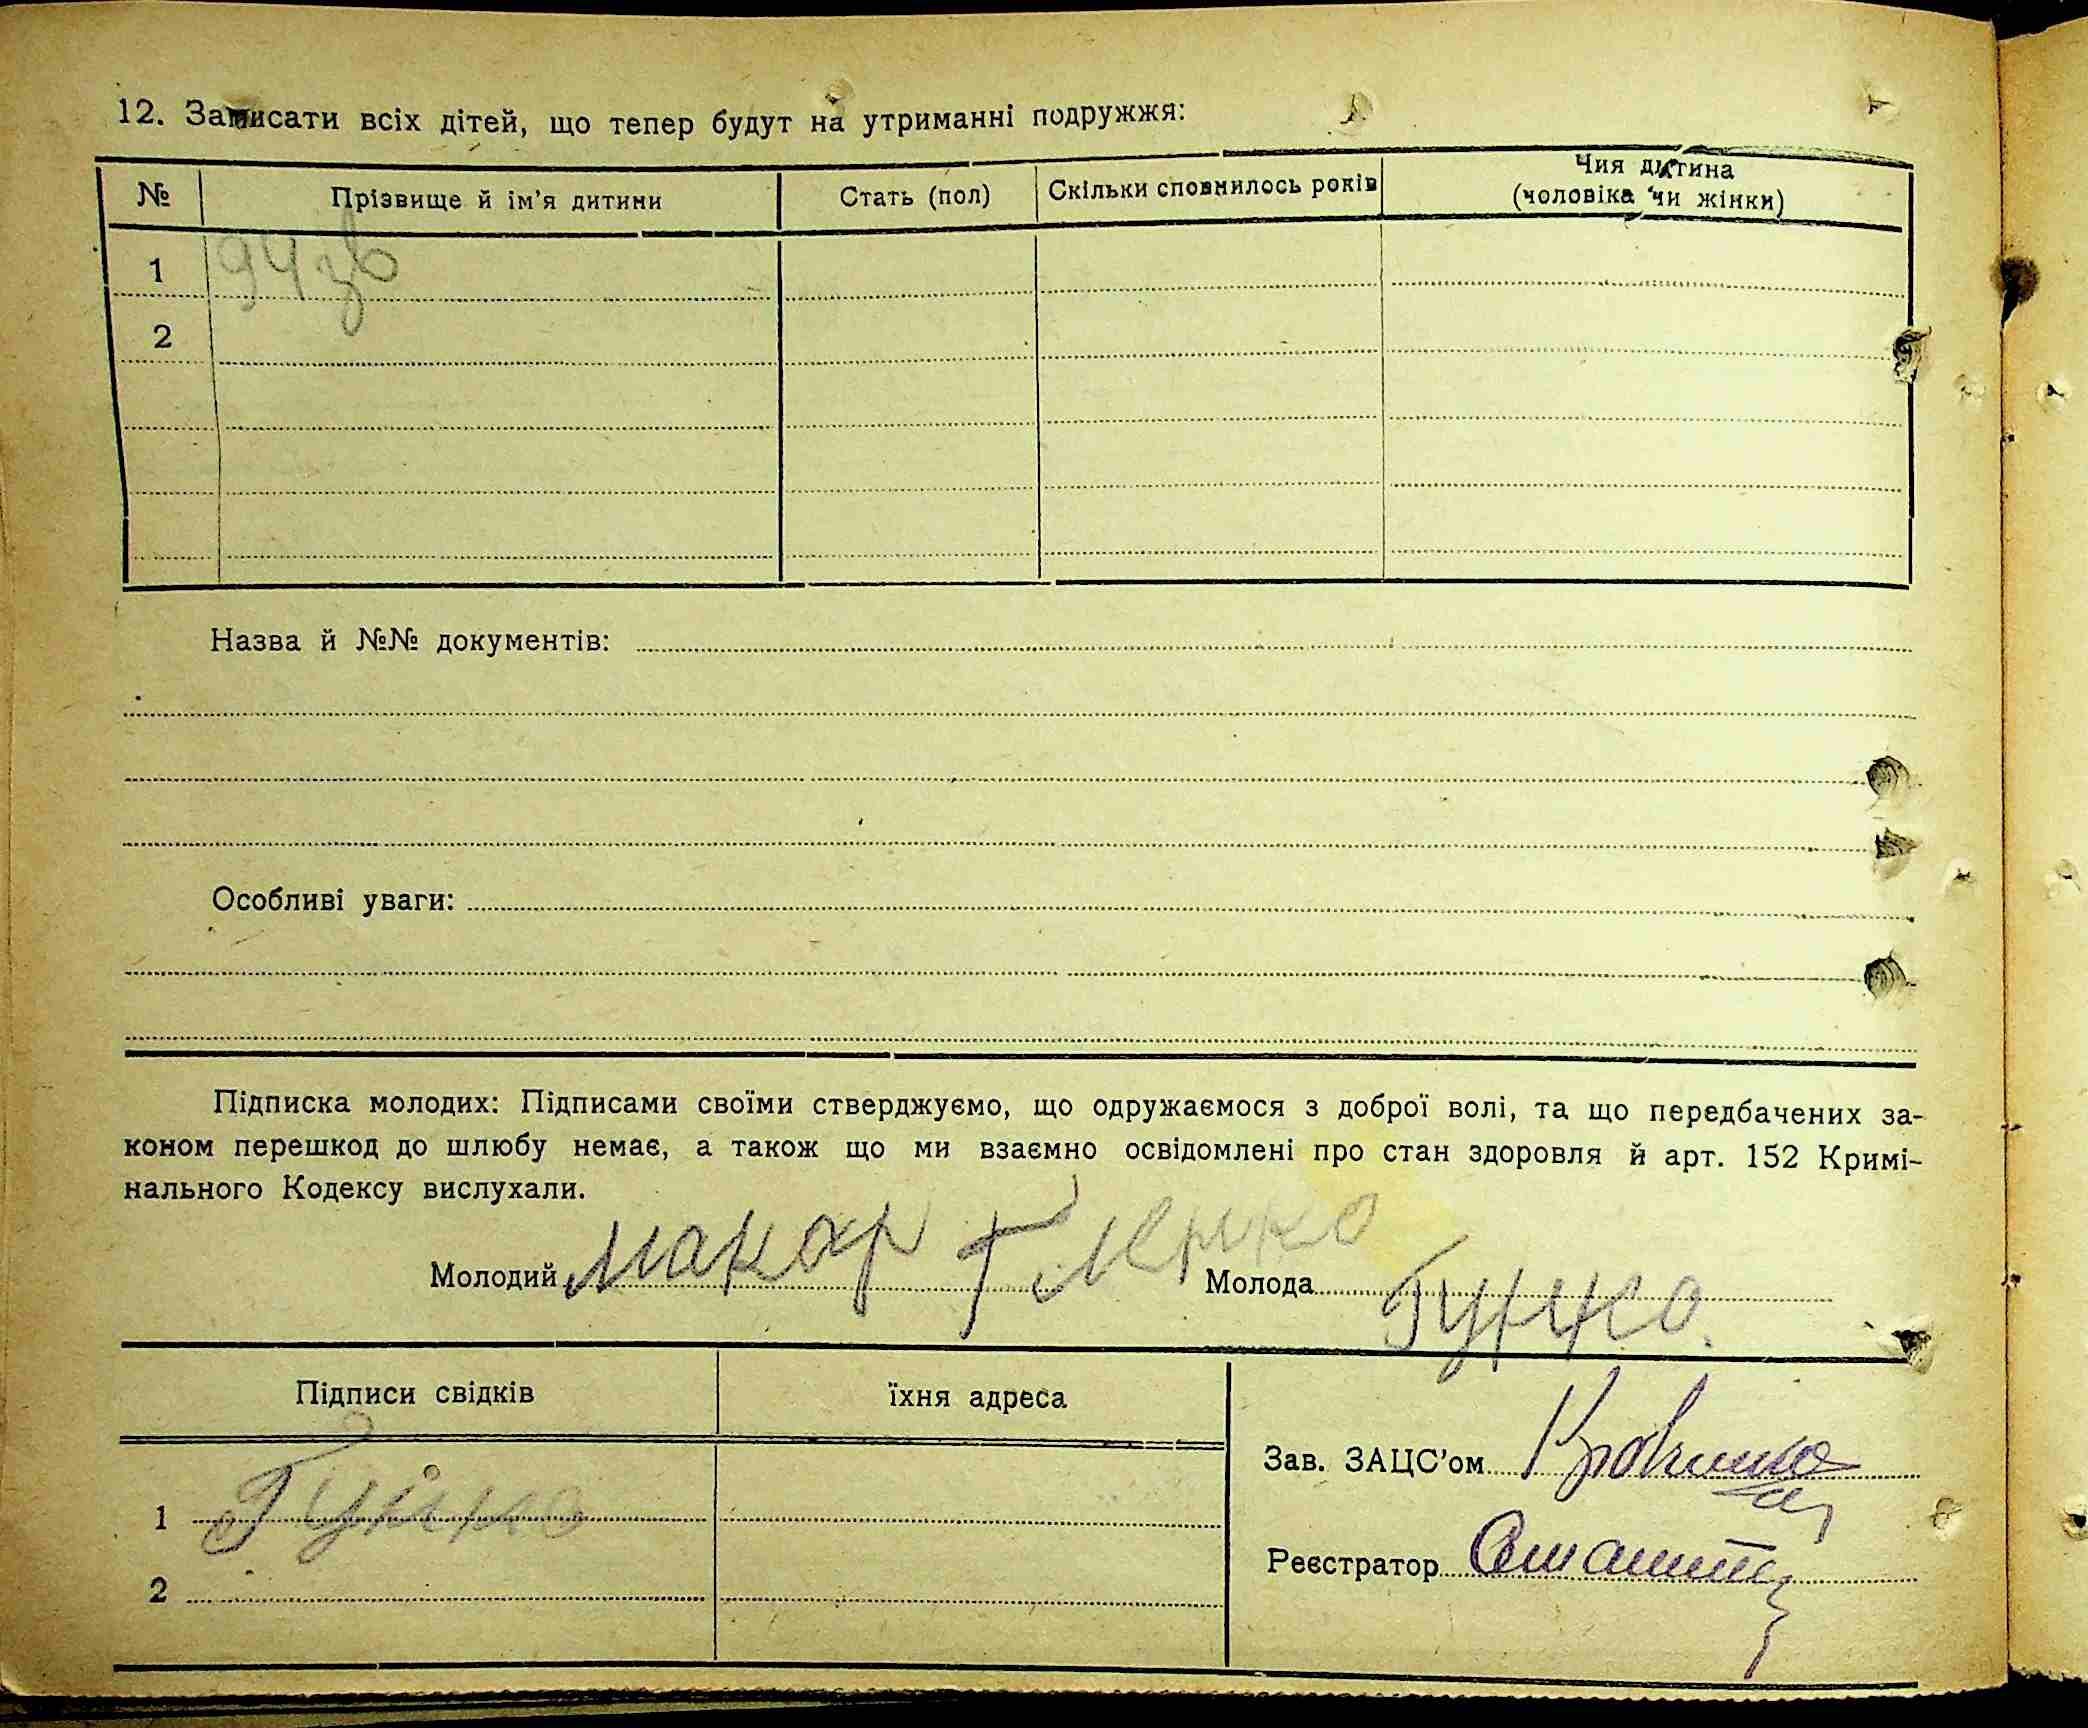 12. Записати всіх дітей, що тепер будут на утриманні подружжя:
№ Прізвище й ім'я дитини Стать (пол) Скільки сповнилось років Чия дитина
(чоловіка чи жінки)
1 94 зв
2
Назва й №№ документів:
Особливі уваги:
Підписка молодих: Підписами своїми стверджуємо, що одружаємося з доброї волі, та що передбачених за-
коном перешкод до шлюбу немає, а також що ми взаємно освідомлені про стан здоровля й арт. 152 Кримі-
нального Кодексу вислухали.
Молодий Макар Молода
Підписи свідків їхня адреса
Зав. ЗАЦС'ом
1
Реєстратор
2